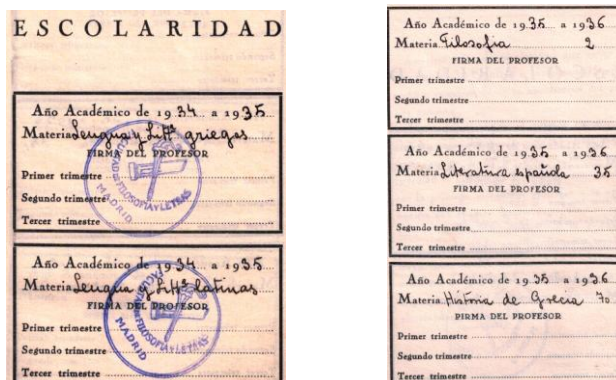 ESCOLARIDAD
Año Académico de 1934 a 1935
Materia Lengua y Litª griegas
FIRMA DEL PROFESOR
Primer trimestre
Segundo trimestre
Tercer trimestre
FACULTAD DE FILOSOFIA Y LETRAS
MADRID
Año Académico de 1934 a 1935
Materia Lengua y Litª latinas
FIRMA DEL PROFESOR
Primer trimestre
Segundo trimestre
Tercer trimestre
FACULTAD DE FILOSOFIA Y LETRAS
MADRID
Año Académico de 1935 a 1936
Materia Filosofia 2
FIRMA DEL PROFESOR
Primer trimestre
Segundo trimestre
Tercer trimestre
Año Académico de 1935 a 1936
Materia Literatura española 35
FIRMA DEL PROFESOR
Primer trimestre
Segundo trimestre
Tercer trimestre
Año Académico de 1935 a 1936
Materia Historia de Grecia 70
FIRMA DEL PROFESOR
Primer trimestre
Segundo trimestre
Tercer trimestre